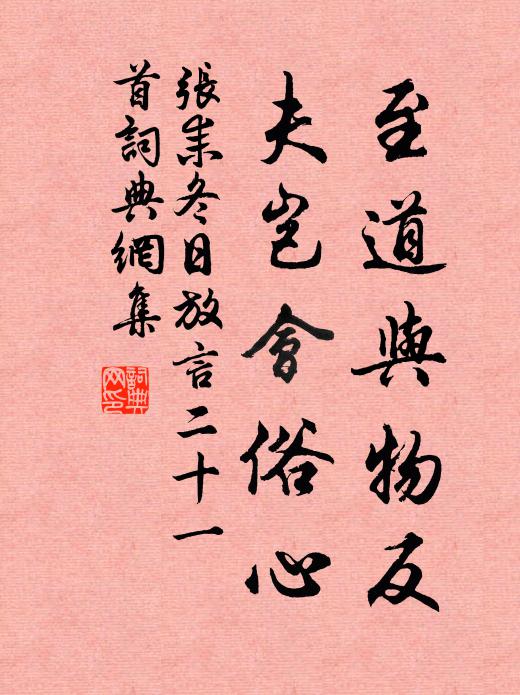 至道與物反
夫岂會俗心
張耒冬日放言二十一
首詞典網集
詞典網印